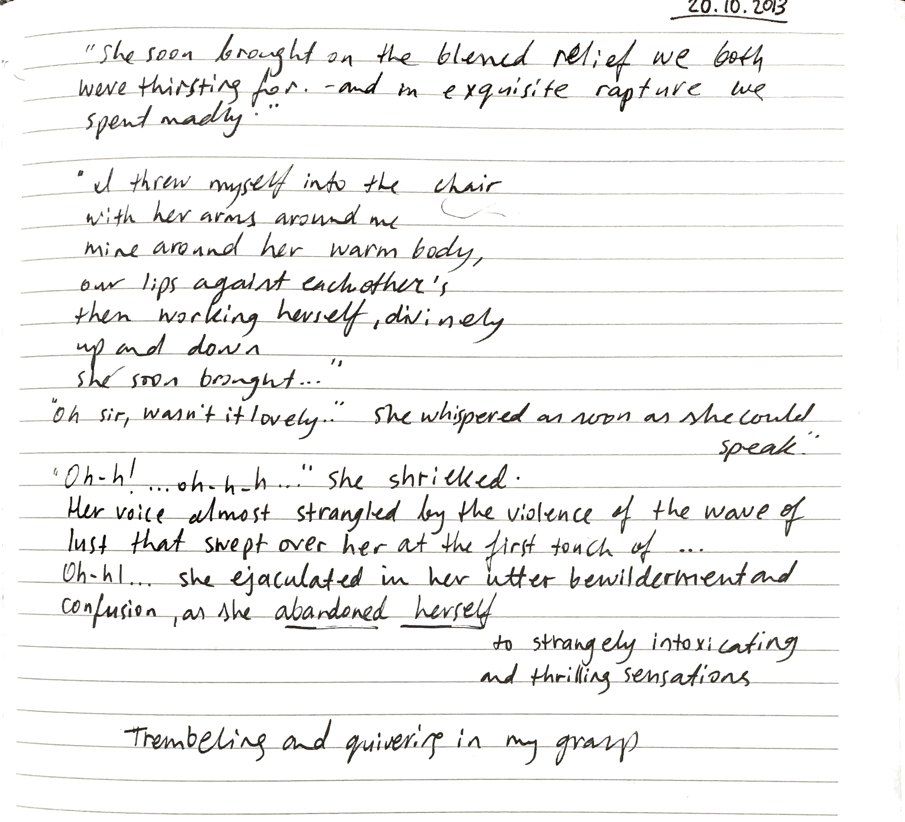 20.10.2013
"She soon brought on the blessed relief we both
were thirsting for. - and in exquisite rapture we
spent madly."
"I threw myself into the chair
with her arms around me
mine around her warm body,
our lips against eachother's
then working herself, divinely
up and down
she soon brought..."
"Oh sir, wasn't it lovely.." she whispered as soon as she could
speak."
"Oh-h! ...oh-h-h..." she shrieked.
Her voice almost strangled by the violence of the wave of
lust that swept over her at the first touch of ...
Oh-h!... she ejaculated in her utter bewilderment and
confusion, as she abandoned herself
to strangely intoxicating
and thrilling sensations
Trembeling and quivering in my grasp